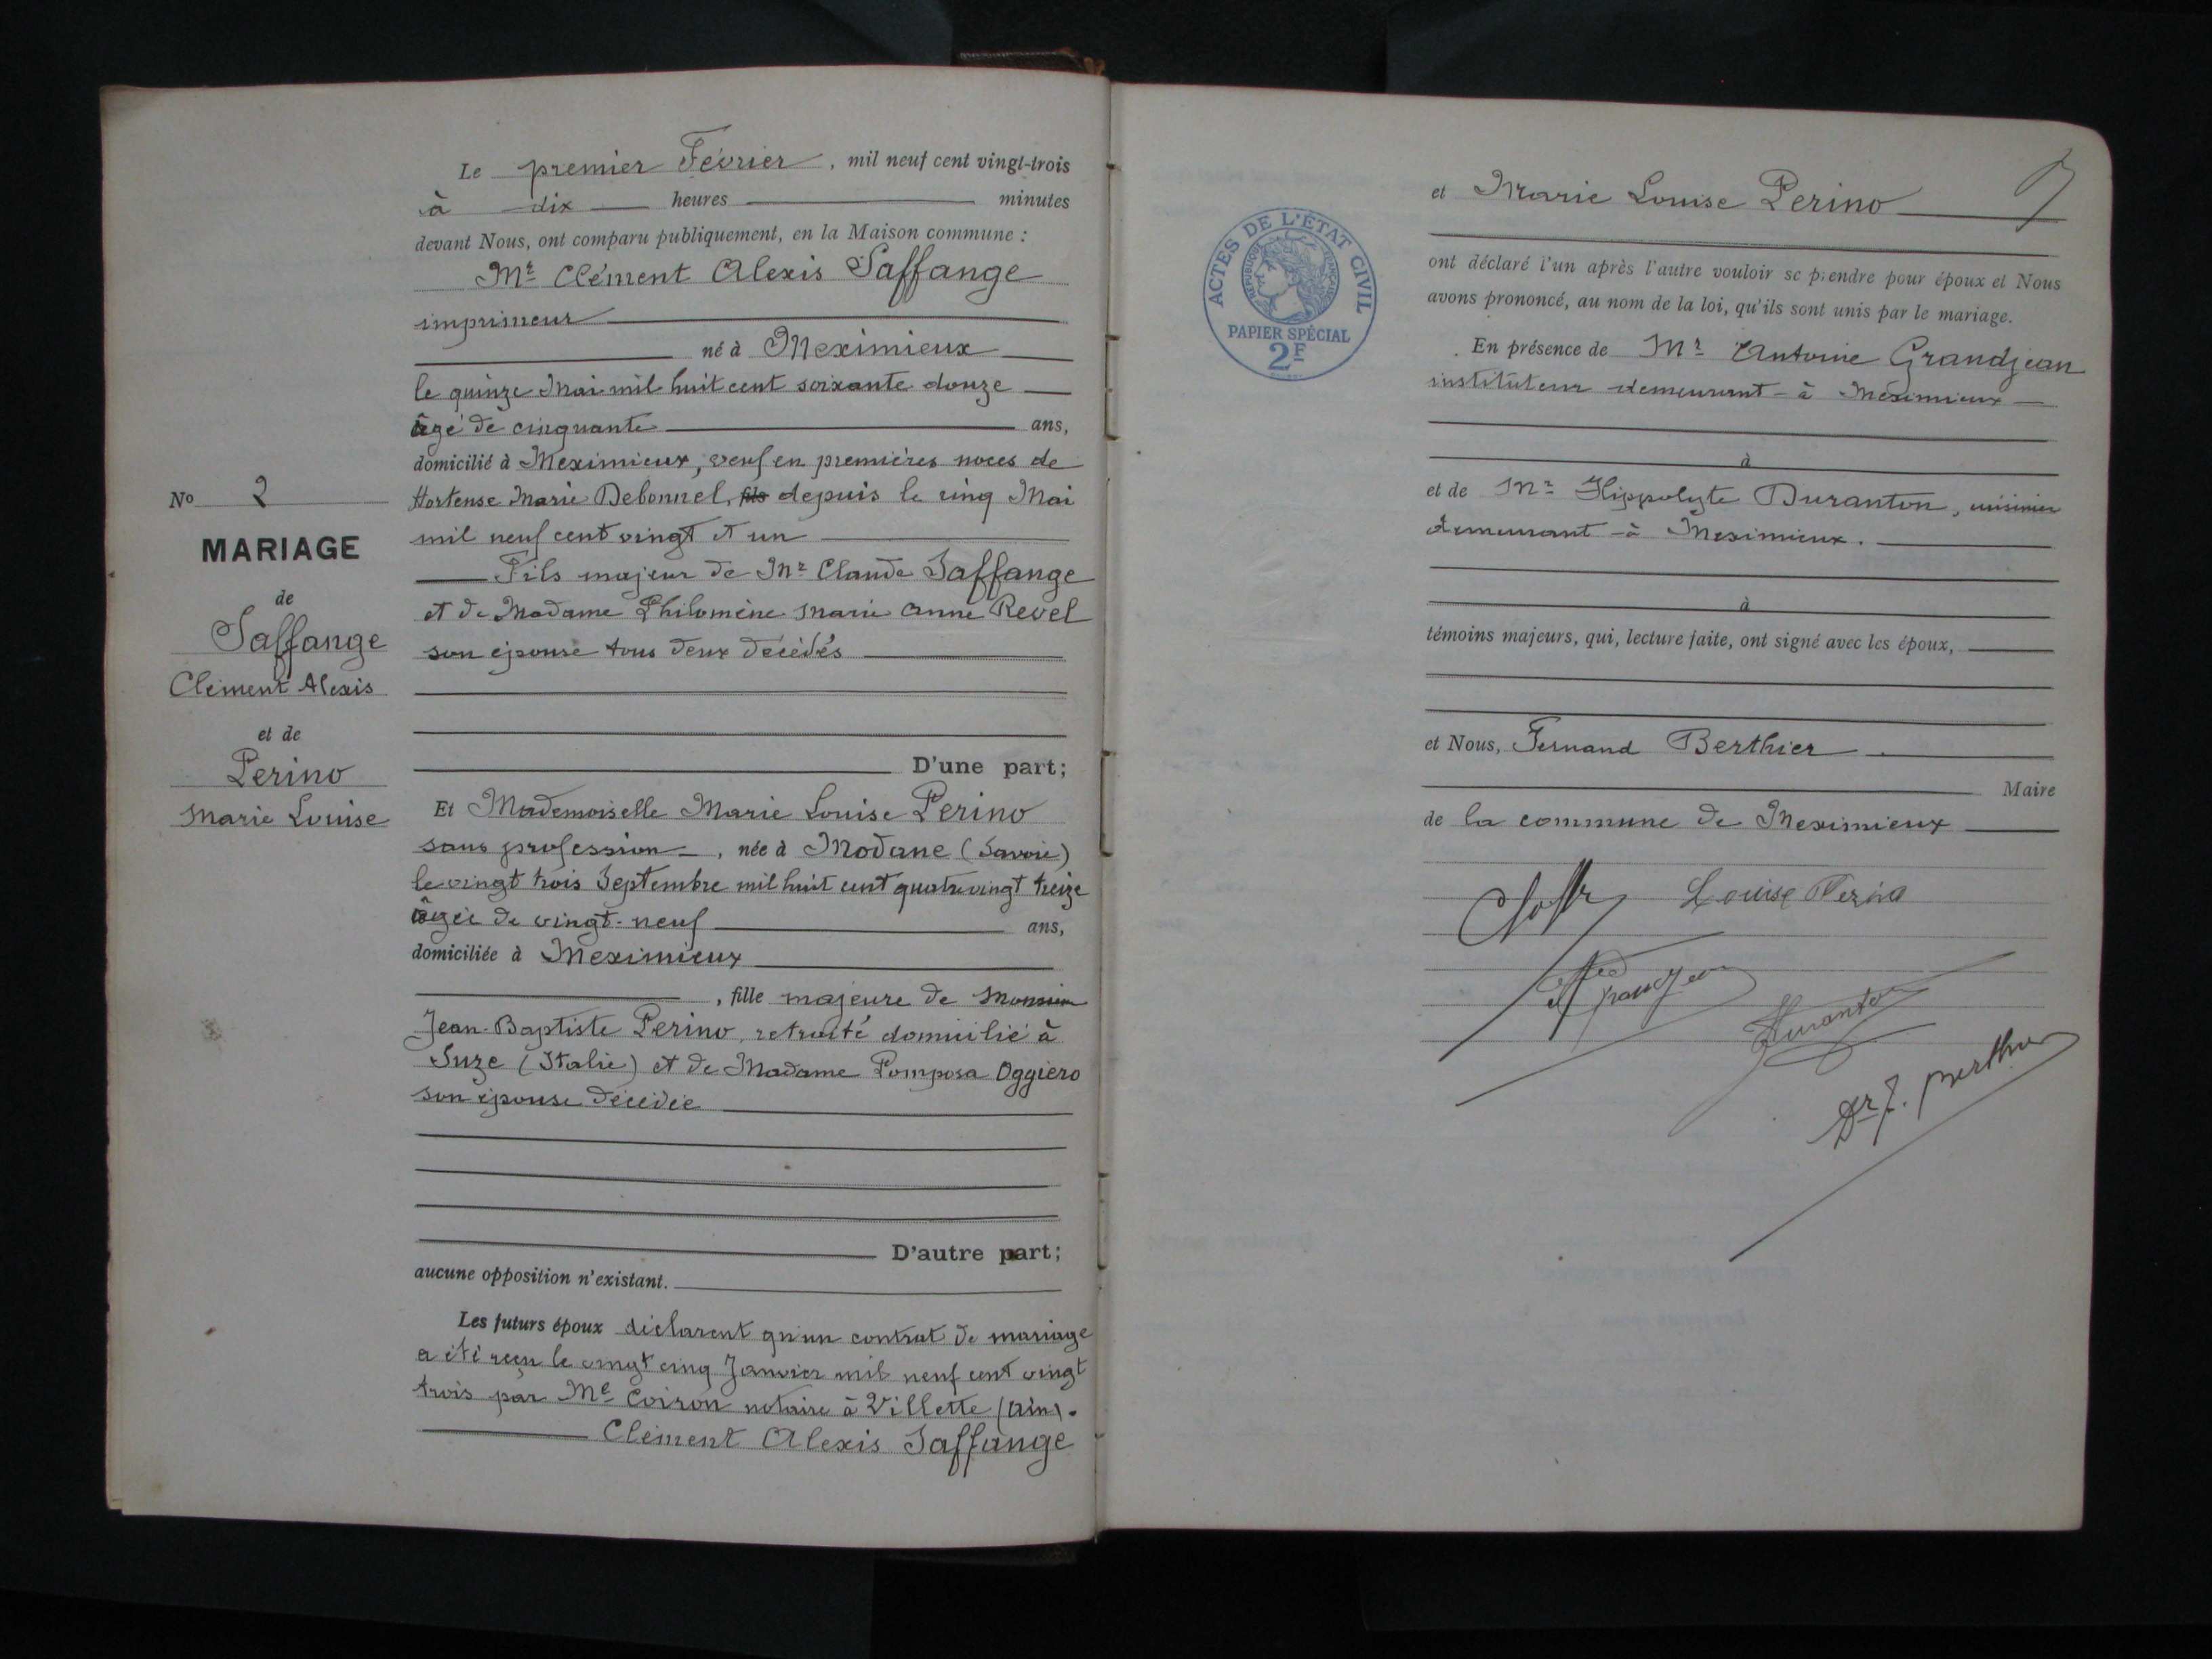 Le premier Février, mil neuf cent vingt-trois
à dix heures minutes
devant Nous, ont comparu publiquement, en la Maison commune :
Mr Clément Alexis Saffange
imprimeur
né à Meximieux
le quinze Mai mil huit cent soixante douze
âgé de cinquante ans,
domicilié à Meximieux, veuf en premières noces de
Hortense Marie Debonnel, fils depuis le cinq Mai
mil neuf cent vingt et un
Fils majeur de Mr Claude Saffange
et de Madame Philomène Marie Anne Revel
son épouse tous deux décédés
D'une part;
No 2
MARIAGE
de
Saffange
Clément Alexis
et de
Perino
Marie Louise
Et Mademoiselle Marie Louise Perino
sans profession, née à Modane (Savoie)
le vingt trois Septembre mil huit cent quatre vingt treize
âgée de vingt-neuf ans,
domiciliée à Meximieux
, fille majeure de Monsieur
Jean-Baptiste Perino, retraité domicilié à
Suze (Italie) et de Madame Pomposa Oggiero
son épouse décédée
D'autre part;
aucune opposition n'existant.
Les futurs époux déclarent qu'un contrat de mariage
a été reçu le vingt cinq Janvier mil neuf cent vingt
trois par Me Coiron notaire à Villette (Ain).
Clément Alexis Saffange
et Marie Louise Perino
ACTES DE L'ÉTAT CIVIL
RÉPUBLIQUE FRANÇAISE
PAPIER SPÉCIAL
2F
ont déclaré l'un après l'autre vouloir se prendre pour époux et Nous
avons prononcé, au nom de la loi, qu'ils sont unis par le mariage.
En présence de Mr Antoine Grandjean
instituteur demeurant à Méximieux
à
et de Mr Hippolyte Duranton, cuisinier
demeurant à Meximieux.
à
témoins majeurs, qui, lecture faite, ont signé avec les époux,
et Nous, Fernand Berthier.
Maire
de la commune de Meximieux
Louise Perino
Grandjean
Duranton
Dr F. Berthier